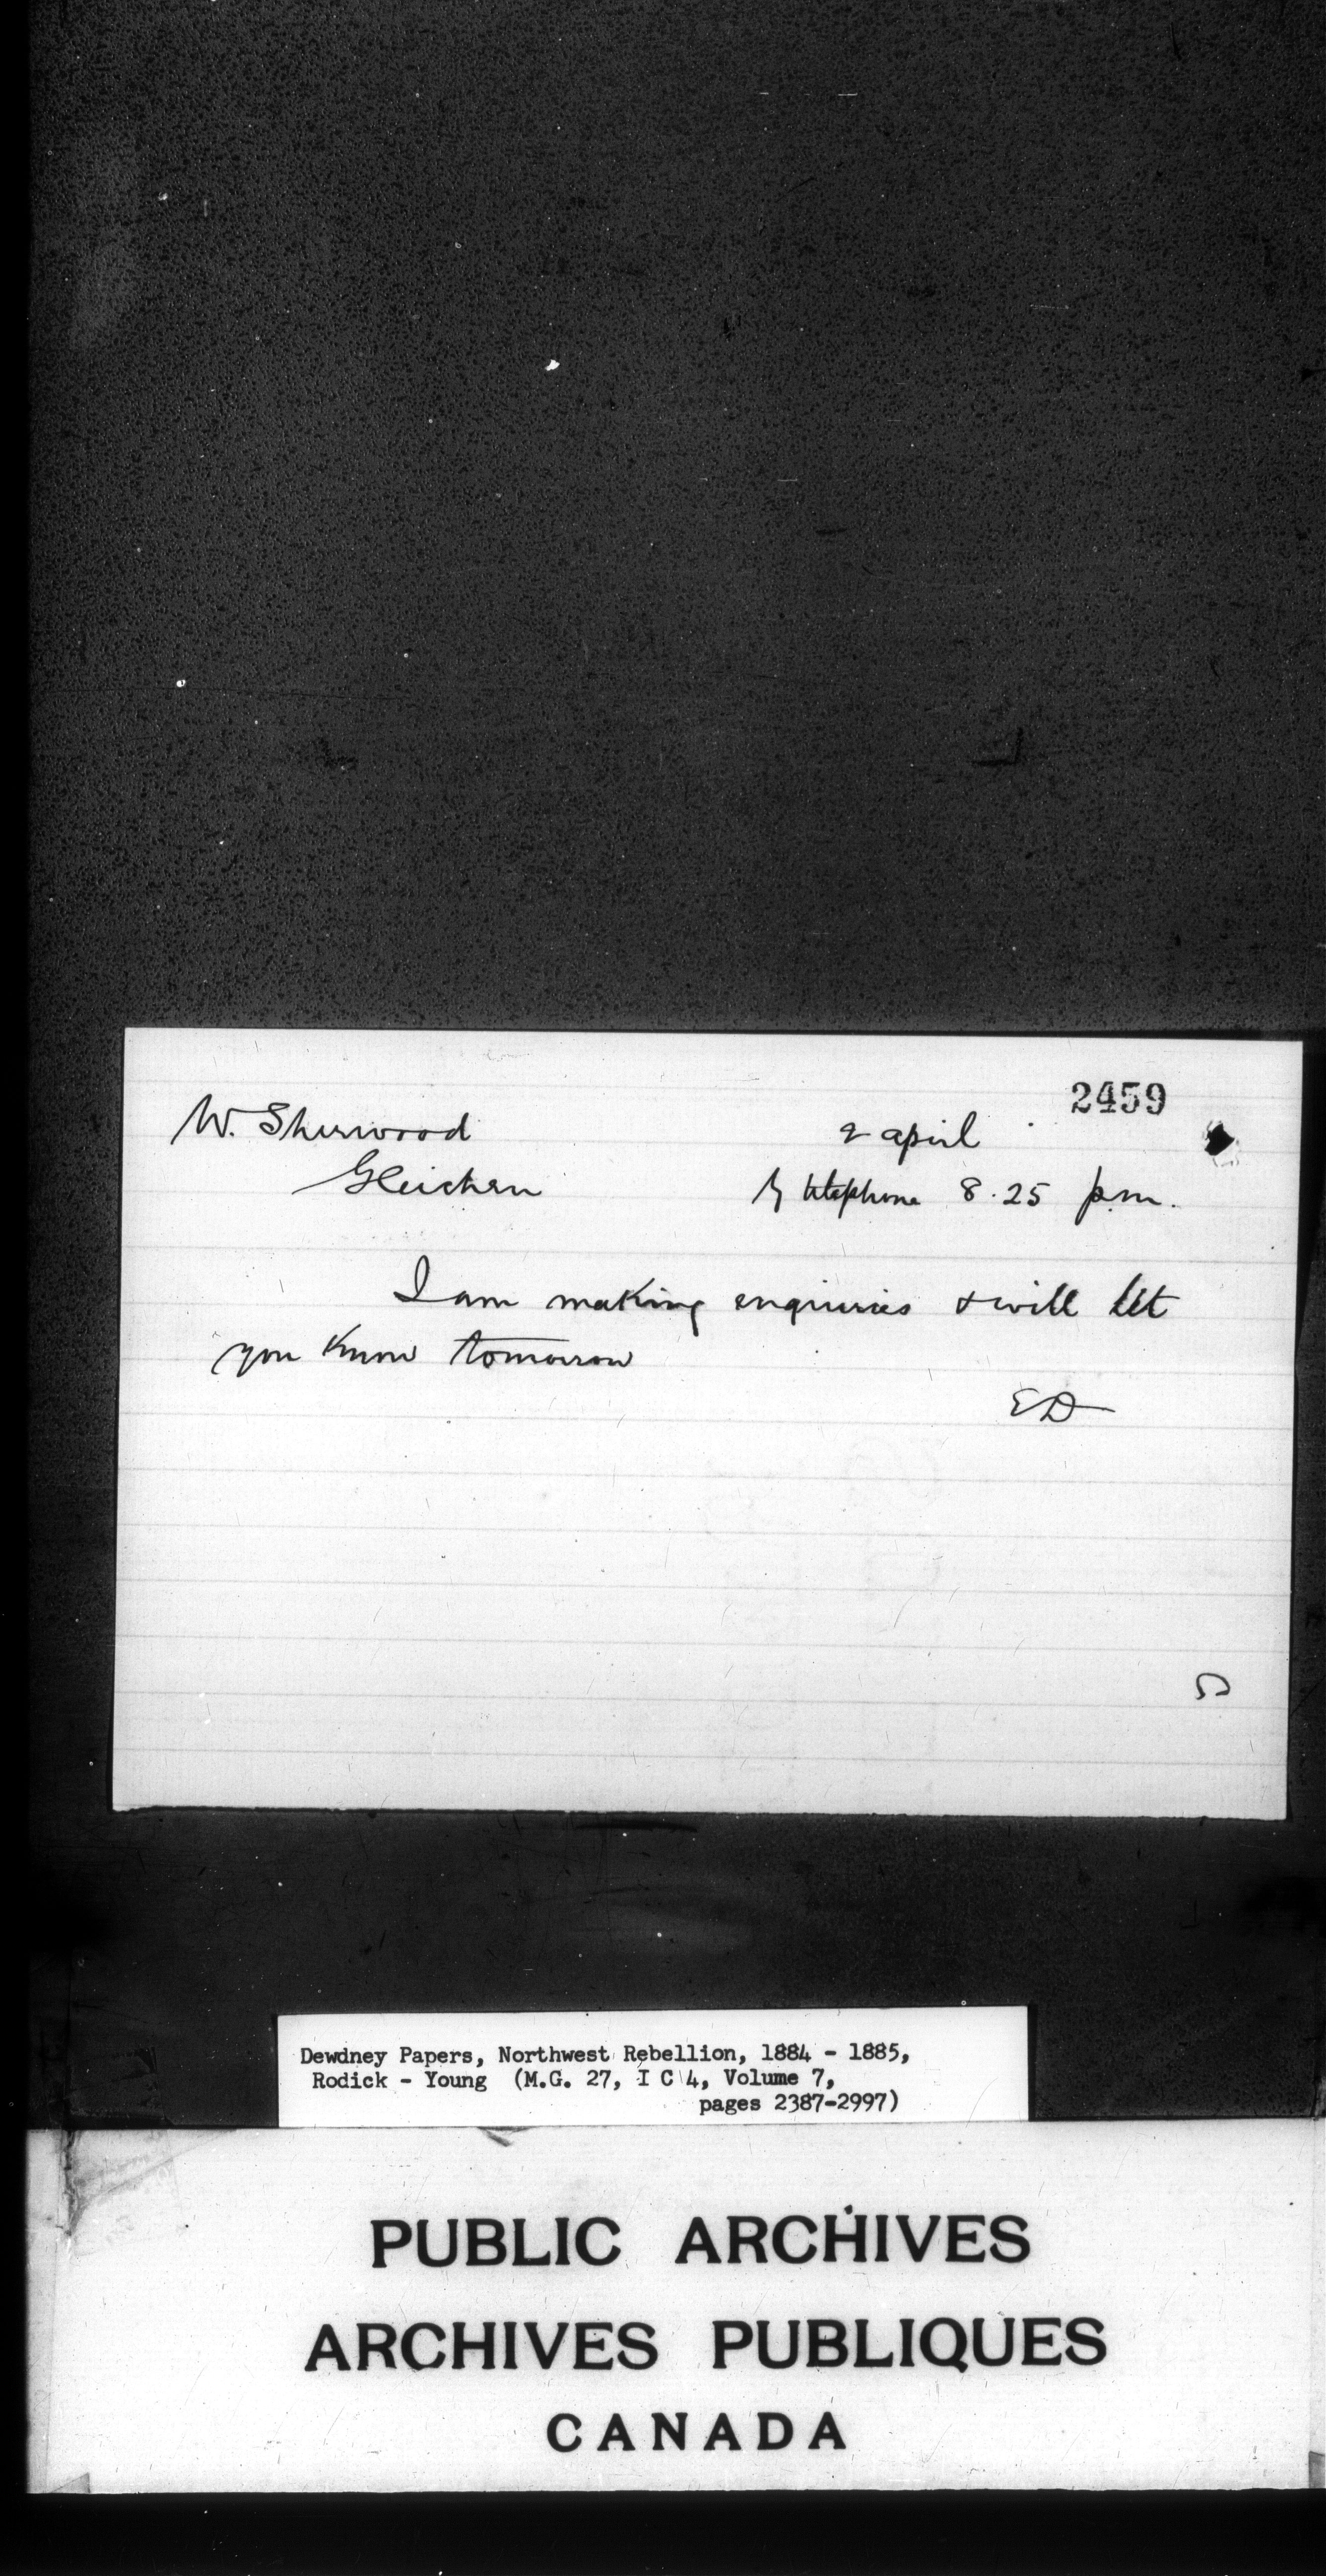 2459
W. Sherwood 2 april
Gleichen By telephone 8.25 p.m.
I am making enquiries & will let
you know tomorrow
ED
Dewdney Papers, Northwest Rebellion, 1884 - 1885,
Rodick - Young (M.G. 27, I C 4, Volume 7,
pages 2387-2997)
PUBLIC ARCHIVES
ARCHIVES PUBLIQUES
CANADA